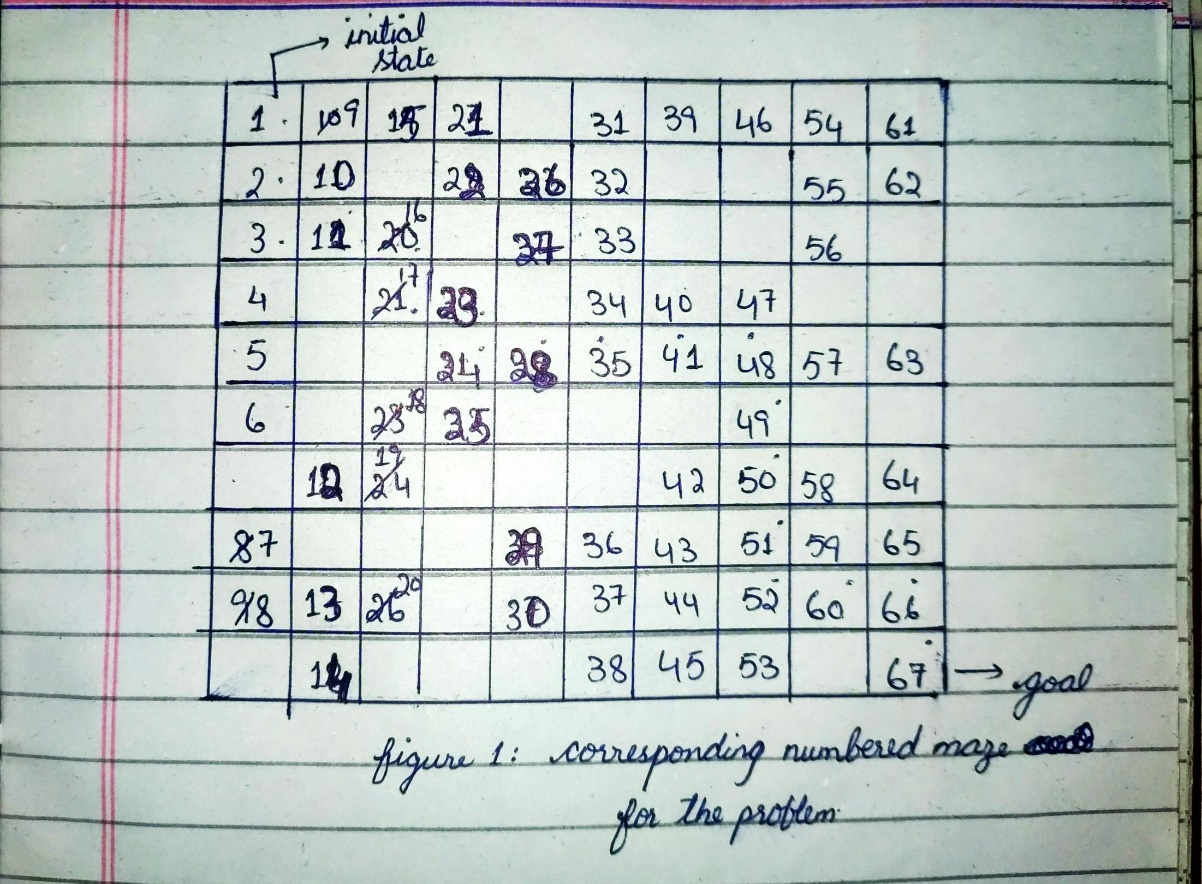 initial
state
1 9 15 21 31 39 46 54 61
2 10 22 26 32 55 62
3 11 16 27 33 56
4 17 23 34 40 47
5 24 28 35 41 48 57 63
6 18 25 49
12 19 42 50 58 64
7 29 36 43 51 59 65
8 13 20 30 37 44 52 60 66
14 38 45 53 67 goal
figure 1: corresponding numbered maze
for the problem